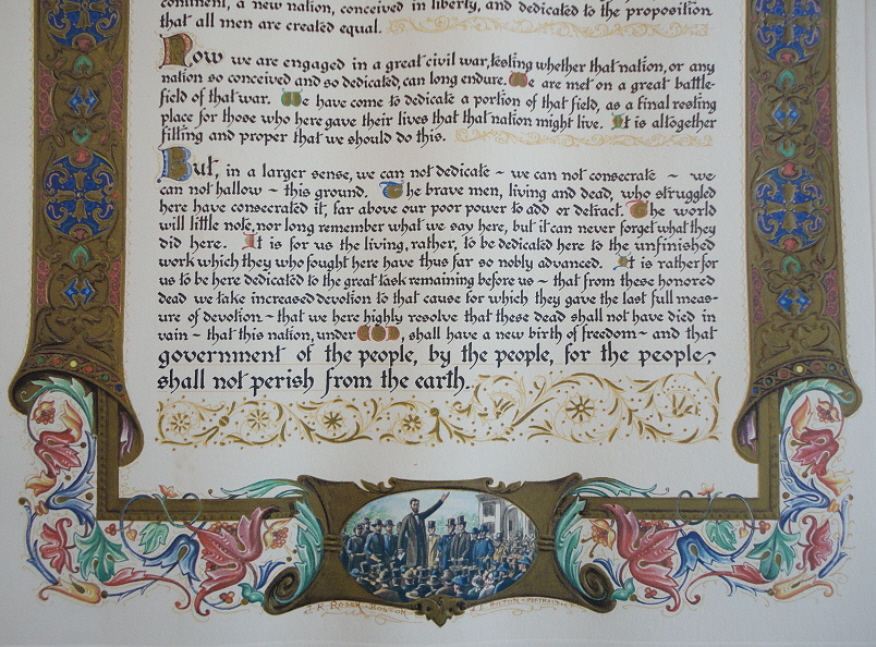 continent, a new nation, conceived in liberty, and dedicated to the proposition
that all men are created equal.
Now we are engaged in a great civil war, testing whether that nation, or any
nation so conceived and so dedicated, can long endure. We are met on a great battle-
field of that war. We have come to dedicate a portion of that field, as a final resting
place for those who here gave their lives that that nation might live. It is altogether
fitting and proper that we should do this.
But, in a larger sense, we can not dedicate ~ we can not consecrate ~ we
can not hallow ~ this ground. The brave men, living and dead, who struggled
here have consecrated it, far above our poor power to add or detract. The world
will little note, nor long remember what we say here, but it can never forget what they
did here. It is for us the living, rather, to be dedicated here to the unfinished
work which they who fought here have thus far so nobly advanced. It is rather for
us to be here dedicated to the great task remaining before us ~ that from these honored
dead we take increased devotion to that cause for which they gave the last full meas-
ure of devotion ~ that we here highly resolve that these dead shall not have died in
vain ~ that this nation, under GOD, shall have a new birth of freedom ~ and that
government of the people, by the people, for the people,
shall not perish from the earth.
ROSEN BOSTON